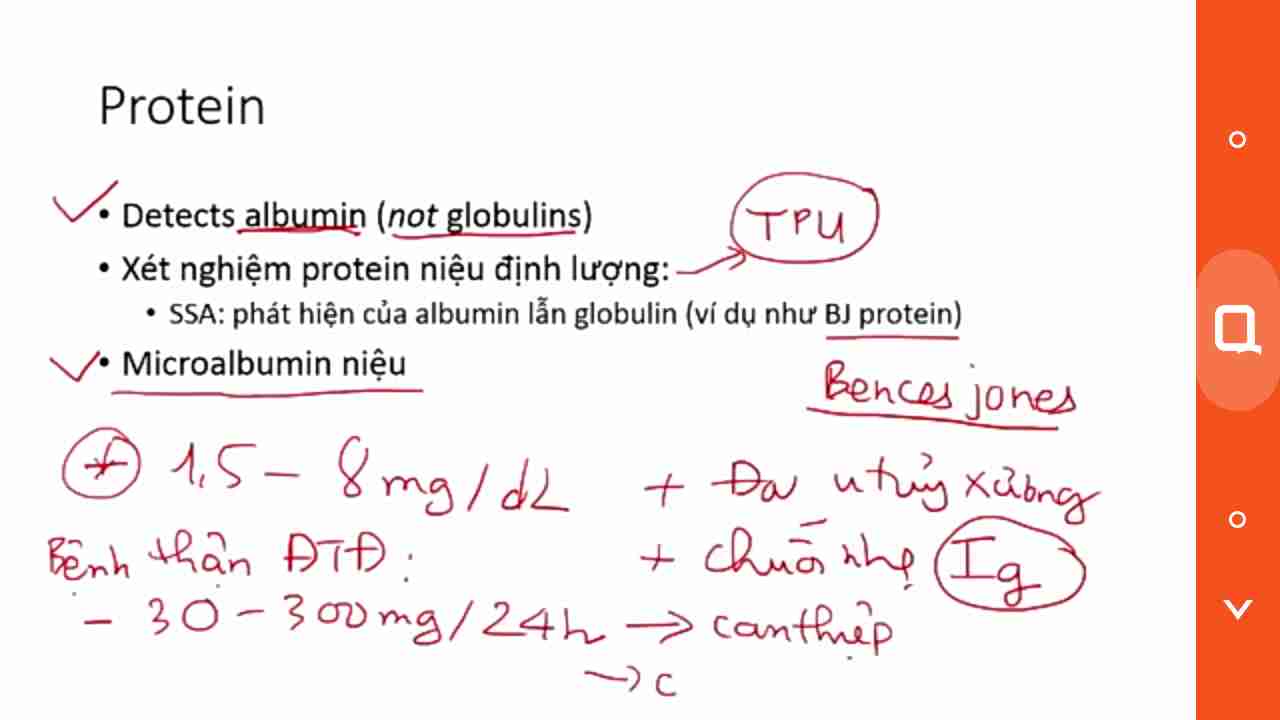 Protein
• Detects albumin (not globulins)
TPU
• Xét nghiệm protein niệu định lượng:
• SSA: phát hiện của albumin lẫn globulin (ví dụ như BJ protein)
• Microalbumin niệu
Bences jones
+ 1,5 - 8 mg/dL
+ Đa u tủy xương
Bệnh thận ĐTĐ:
+ chuỗi nhẹ Ig
- 30 - 300 mg/24h → can thiệp
→ c